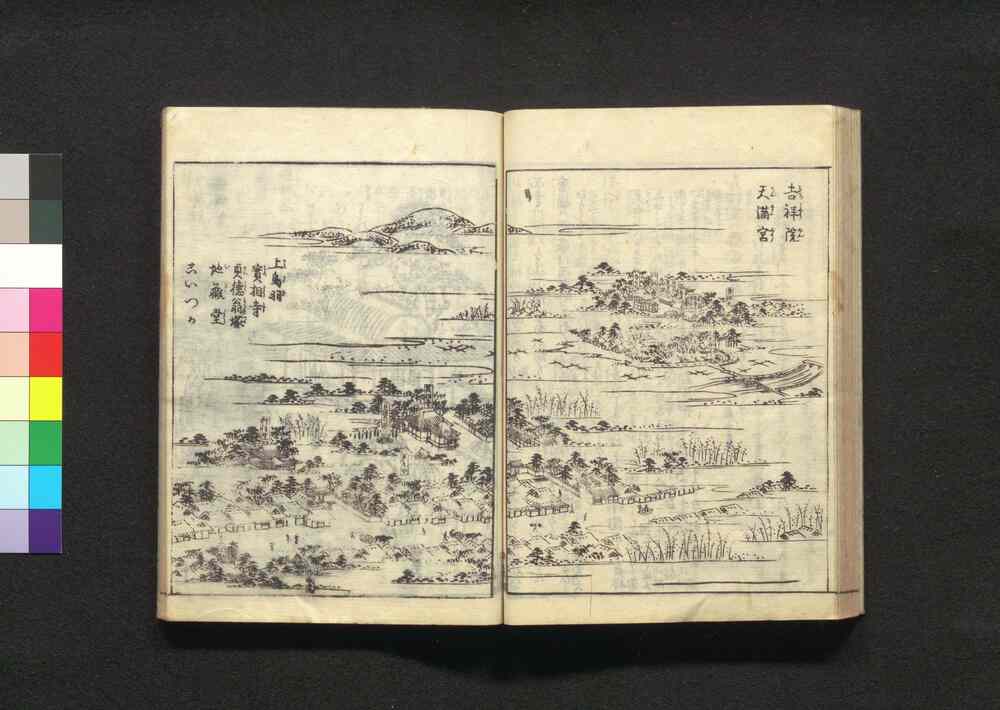 吉祥院
天満宮
上鳥羽
實相寺
貞徳翁塚
地蔵堂
こいつか